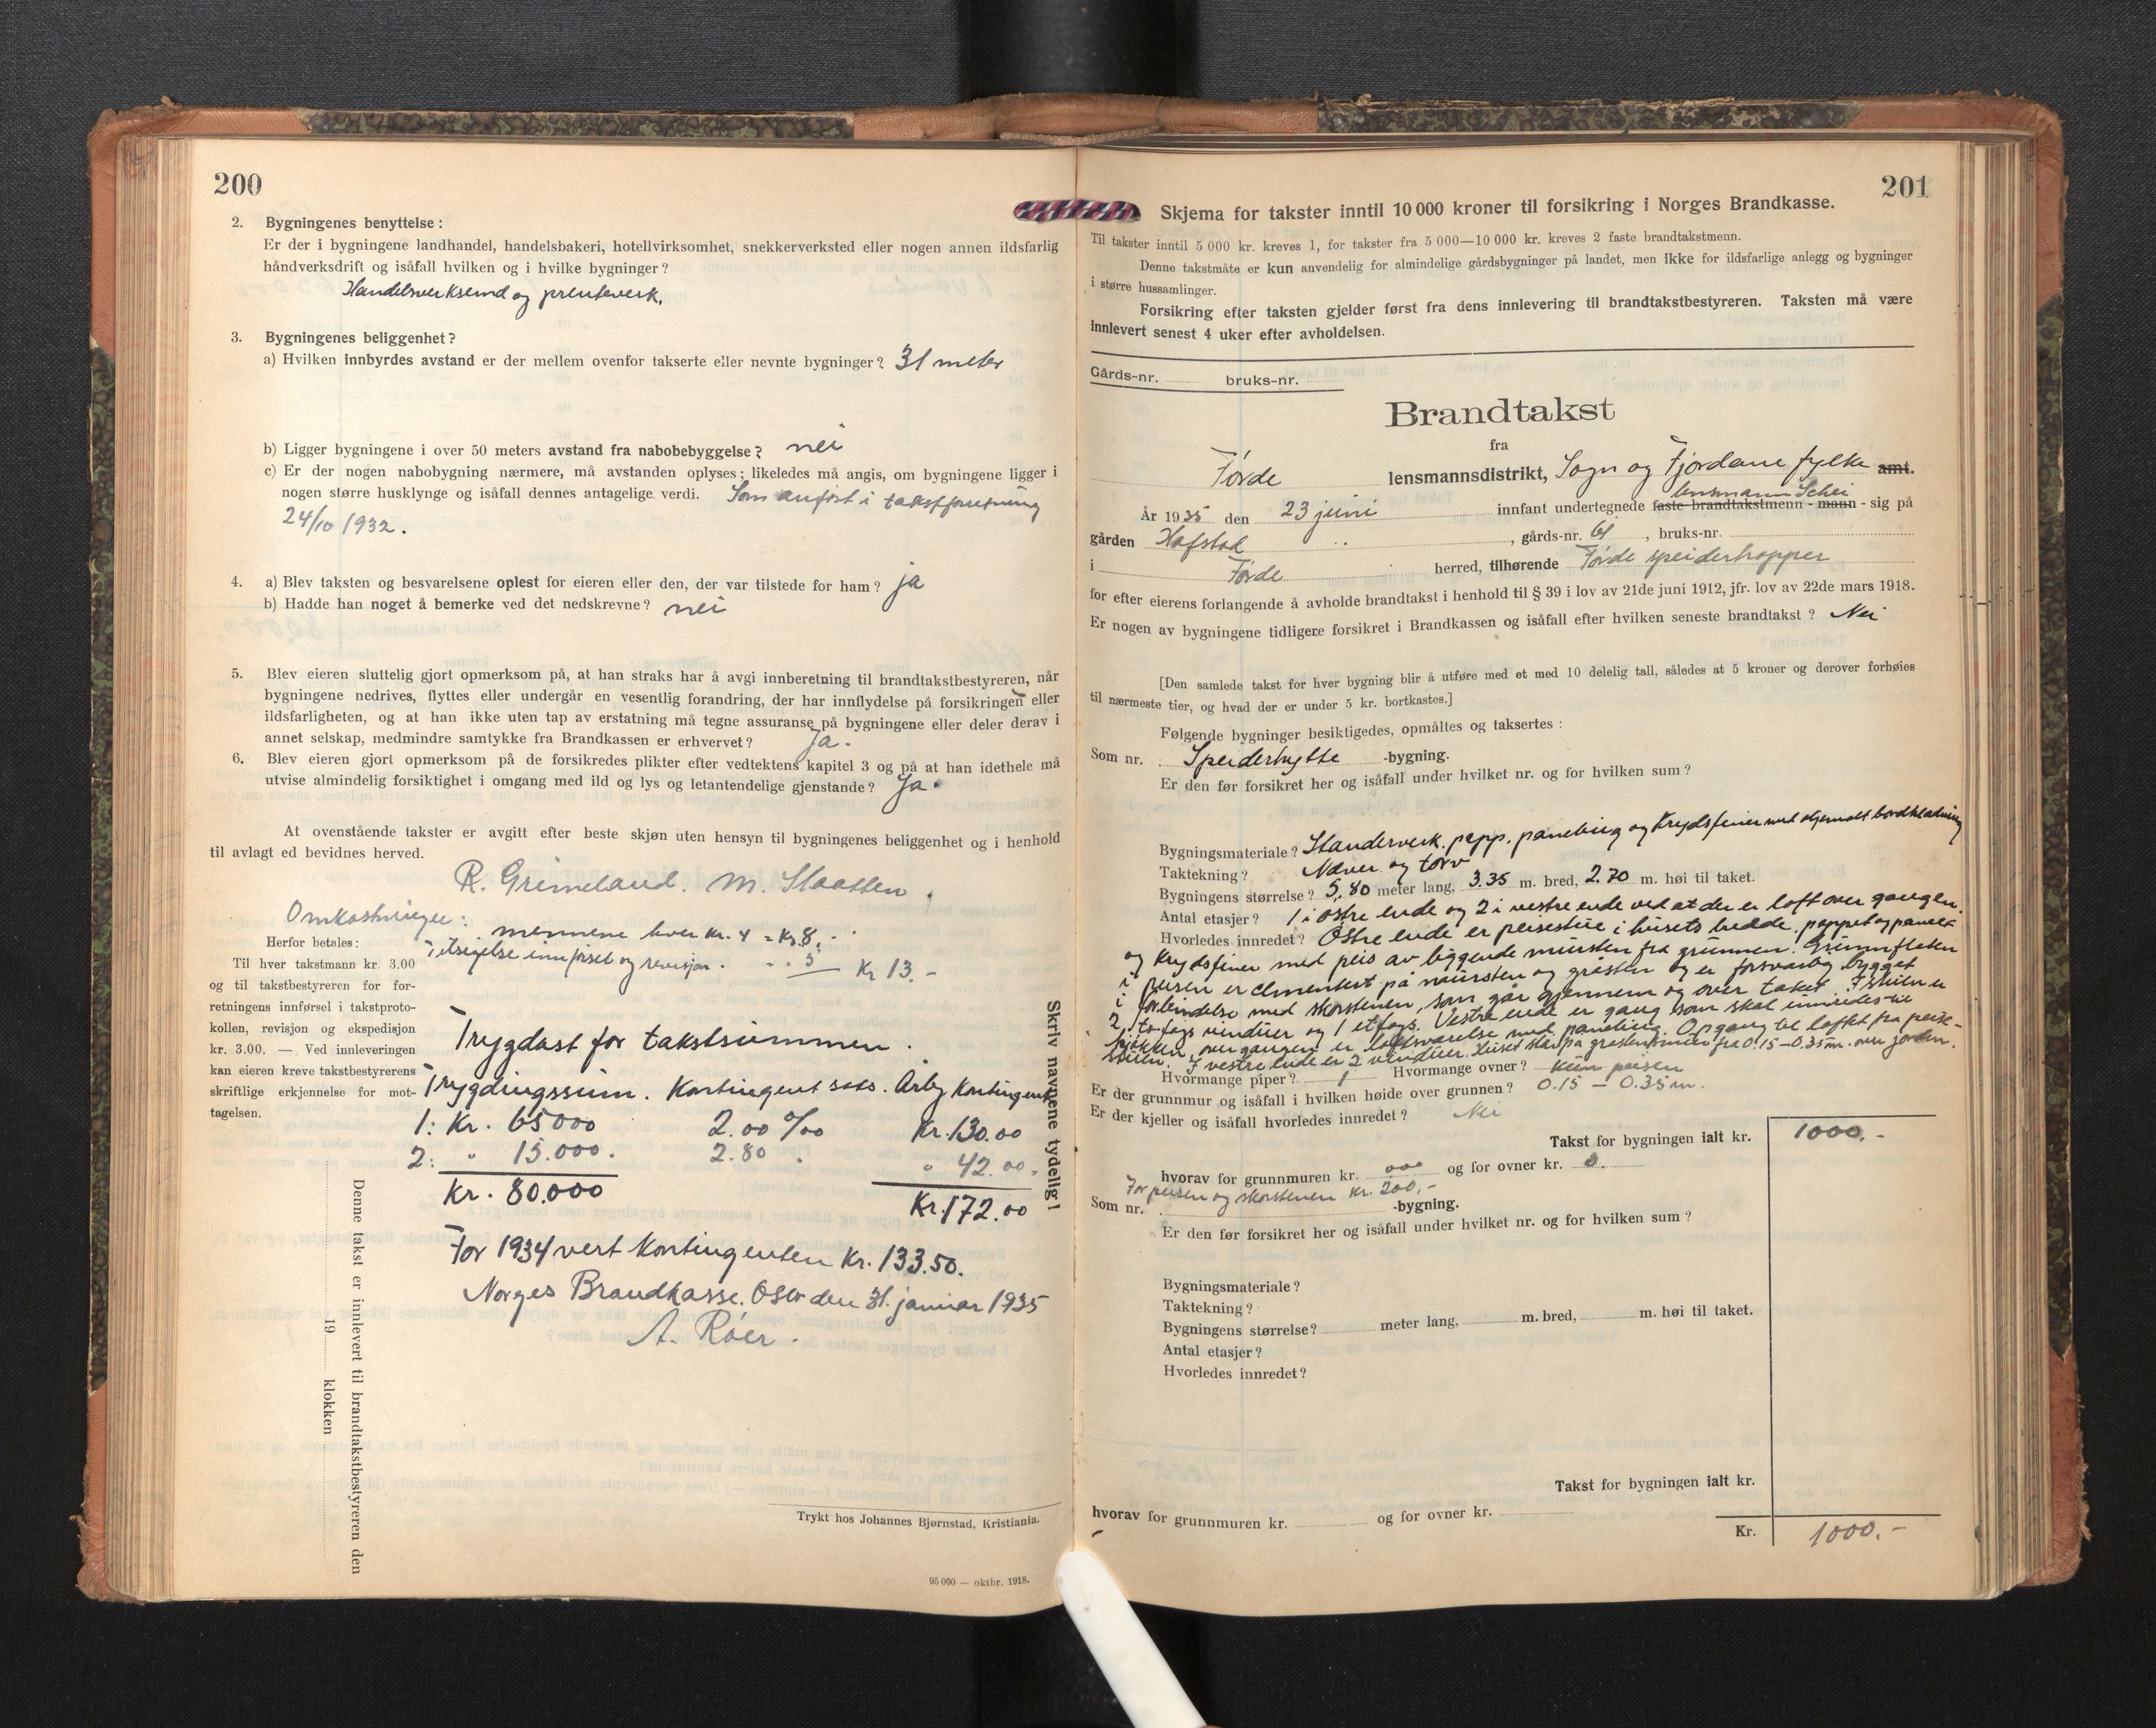 200
2. Bygningenes benyttelse:
Er der i bygningene landhandel, handelsbakeri, hotellvirksomhet, snekkerverksted eller nogen annen ildsfarlig
håndverksdrift og isåfall hvilken og i hvilke bygninger?
Handelsverksemd og prenteverk.
3. Bygningenes beliggenhet?
a) Hvilken innbyrdes avstand er der mellem ovenfor takserte eller nevnte bygninger? 31 meter
b) Ligger bygningene i over 50 meters avstand fra nabobebyggelse? nei
c) Er der nogen nabobygning nærmere, må avstanden oplyses; likeledes må angis, om bygningene ligger i
nogen større husklynge og isåfall dennes antagelige verdi. Som anført i takstforretning
24/10 1932.
4. a) Blev taksten og besvarelsene oplest for eieren eller den, der var tilstede for ham? ja
b) Hadde han noget å bemerke ved det nedskrevne? nei
5. Blev eieren sluttelig gjort opmerksom på, at han straks har å avgi innberetning til brandtakstbestyreren, når
bygningene nedrives, flyttes eller undergår en vesentlig forandring, der har innflydelse på forsikringen eller
ildsfarligheten, og at han ikke uten tap av erstatning må tegne assuranse på bygningene eller deler derav i
annet selskap, medmindre samtykke fra Brandkassen er erhvervet? Ja.
6. Blev eieren gjort opmerksom på de forsikredes plikter efter vedtektens kapitel 3 og på at han idethele må
utvise almindelig forsiktighet i omgang med ild og lys og letantendelige gjenstande? Ja.
At ovenstående takster er avgitt efter beste skjøn uten hensyn til bygningenes beliggenhet og i henhold
til avlagt ed bevidnes herved.
R. Grimeland. M. Slaatten.
Omkostninger:
mennene hver kr. 4 = Kr. 8.-
Tilsigelse innførsel og revisjon. - - 5 Kr 13.-
Herfor betales:
Til hver takstmann kr. 3.00
og til takstbestyreren for for-
retningens innførsel i takstproto-
kollen, revisjon og ekspedisjon
kr. 3.00. — Ved innleveringen
kan eieren kreve takstbestyrerens
skriftlige erkjennelse for mot-
tagelsen.
Trygdast for takstsummen.
Trygdingssum. Kontingent sats. Årleg Kontingent
1: Kr. 65000 2.00 ‰ Kr. 130.00
2: " 15.000. 2.80 " " 42.00.
Kr. 80.000 Kr. 172.00
For 1934 vert Kontingenten Kr. 133.50.
Norges Brandkasse, Oslo den 31. januar 1935
A. Róer.
Skriv navnene tydelig!
Denne takst er innlevert til brandtakstbestyreren den
19 klokken
Trykt hos Johannes Bjørnstad, Kristiania.
95 000 — oktbr. 1918.
201
Skjema for takster inntil 10 000 kroner til forsikring i Norges Brandkasse.
Til takster inntil 5 000 kr. kreves 1, for takster fra 5 000—10 000 kr. kreves 2 faste brandtakstmenn.
Denne takstmåte er kun anvendelig for almindelige gårdsbygninger på landet, men ikke for ildsfarlige anlegg og bygninger
i større hussamlinger.
Forsikring efter taksten gjelder først fra dens innlevering til brandtakstbestyreren. Taksten må være
innlevert senest 4 uker efter avholdelsen.
Gårds-nr. bruks-nr.
Brandtakst
fra
Førde lensmannsdistrikt, Sogn og Fjordane fylke amt.
lensmann Schei
År 1935 den 23 juni innfant undertegnede faste brandtakstmenn - mann - sig på
gården Hafstad, gårds-nr. 61, bruks-nr.
i Førde herred, tilhørende Førde speidertropper
for efter eierens forlangende å avholde brandtakst i henhold til § 39 i lov av 21de juni 1912, jfr. lov av 22de mars 1918.
Er nogen av bygningene tidligere forsikret i Brandkassen og isåfall efter hvilken seneste brandtakst? Nei
[Den samlede takst for hver bygning blir å utføre med et med 10 delelig tall, således at 5 kroner og derover forhøies
til nærmeste tier, og hvad der er under 5 kr. bortkastes.]
Følgende bygninger besiktigedes, opmåltes og taksertes:
Som nr. Speiderhytte -bygning.
Er den før forsikret her og isåfall under hvilket nr. og for hvilken sum?
Bygningsmateriale? Standerverk, papp, paneling og Krydsfiner med utjernolt bordkledning
Taktekning? Never og torv
Bygningens størrelse? 5,80 meter lang, 3.35 m. bred, 2.70 m. høi til taket.
Antal etasjer? 1 i østre ende og 2 i vestre ende ved at der er loft over gangen.
Hvorledes innredet? Østre ende er peisestue i husets bredde, pappet og panelt
og krydsfiner med peis av liggende mursten fra grunnen. Grunnflaten
i peisen er cementert på mursten og gråsten og er forsvarlig bygget
i forbindelse med skorstenen, som går gjennem og over taket. I stuen er
2 tofags vinduer og 1 etfags. Vestre ende er gang som skal innredes til
kjøkken, over gangen er loftsværelse med paneling. Opgang til loftet fra peise-
stuen. I vestre ende er 2 vinduer. Huset står på gråstensmur fra 0.15-0.35 m. over jorden.
Hvormange piper? 1 Hvormange ovner? Kun peisen
Er der grunnmur og isåfall i hvilken høide over grunnen? 0.15 — 0.35 m.
Er der kjeller og isåfall hvorledes innredet? Nei
Takst for bygningen ialt kr. 1000.-
hvorav for grunnmuren kr. 000 og for ovner kr. 0.
For peisen og skorstenen kr. 200,-
Som nr. -bygning.
Er den før forsikret her og isåfall under hvilket nr. og for hvilken sum?
Bygningsmateriale?
Taktekning?
Bygningens størrelse? meter lang, m. bred, m. høi til taket.
Antal etasjer?
Hvorledes innredet?
Takst for bygningen ialt kr.
hvorav for grunnmuren kr. og for ovner kr.
Kr. 1000.-